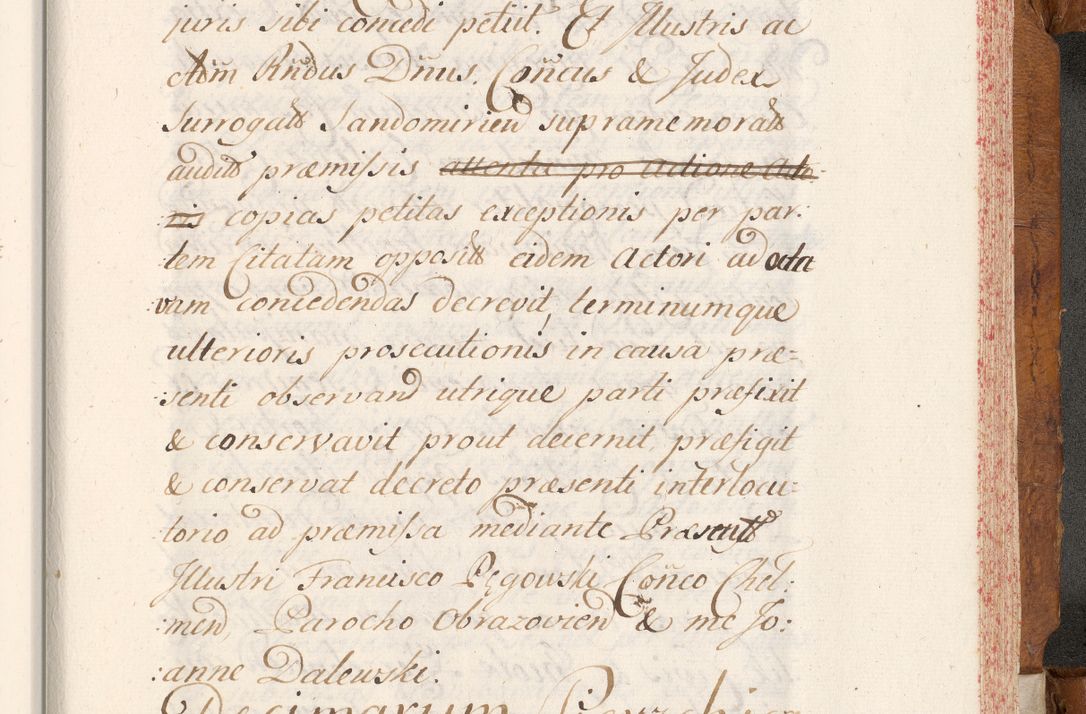 juris sibi concedi petiit. Et Illustris ac
Adm Rñdus Dñus. Coñcus & Judex
Surrogats Sandomirien supramemorats
audits præmissis attentu pro actione Acto
ris copias petitas exceptionis per par:
tem Citatam opposits eidem Actori ad octa
:vam concedendas decrevit, terminumque
ulterioris prosecutionis in causa præ=
senti observand utrique parti præfixit
& conservavit prout decernit, præfigit
& conservat decreto præsenti interlocu=
torio ad præmissa mediante Præsents
Illustri Francisco Pęgowski Coñco Chel:
:men, Parocho Obrazovien & me Jo:
:anne Dalewski.
Decimarum